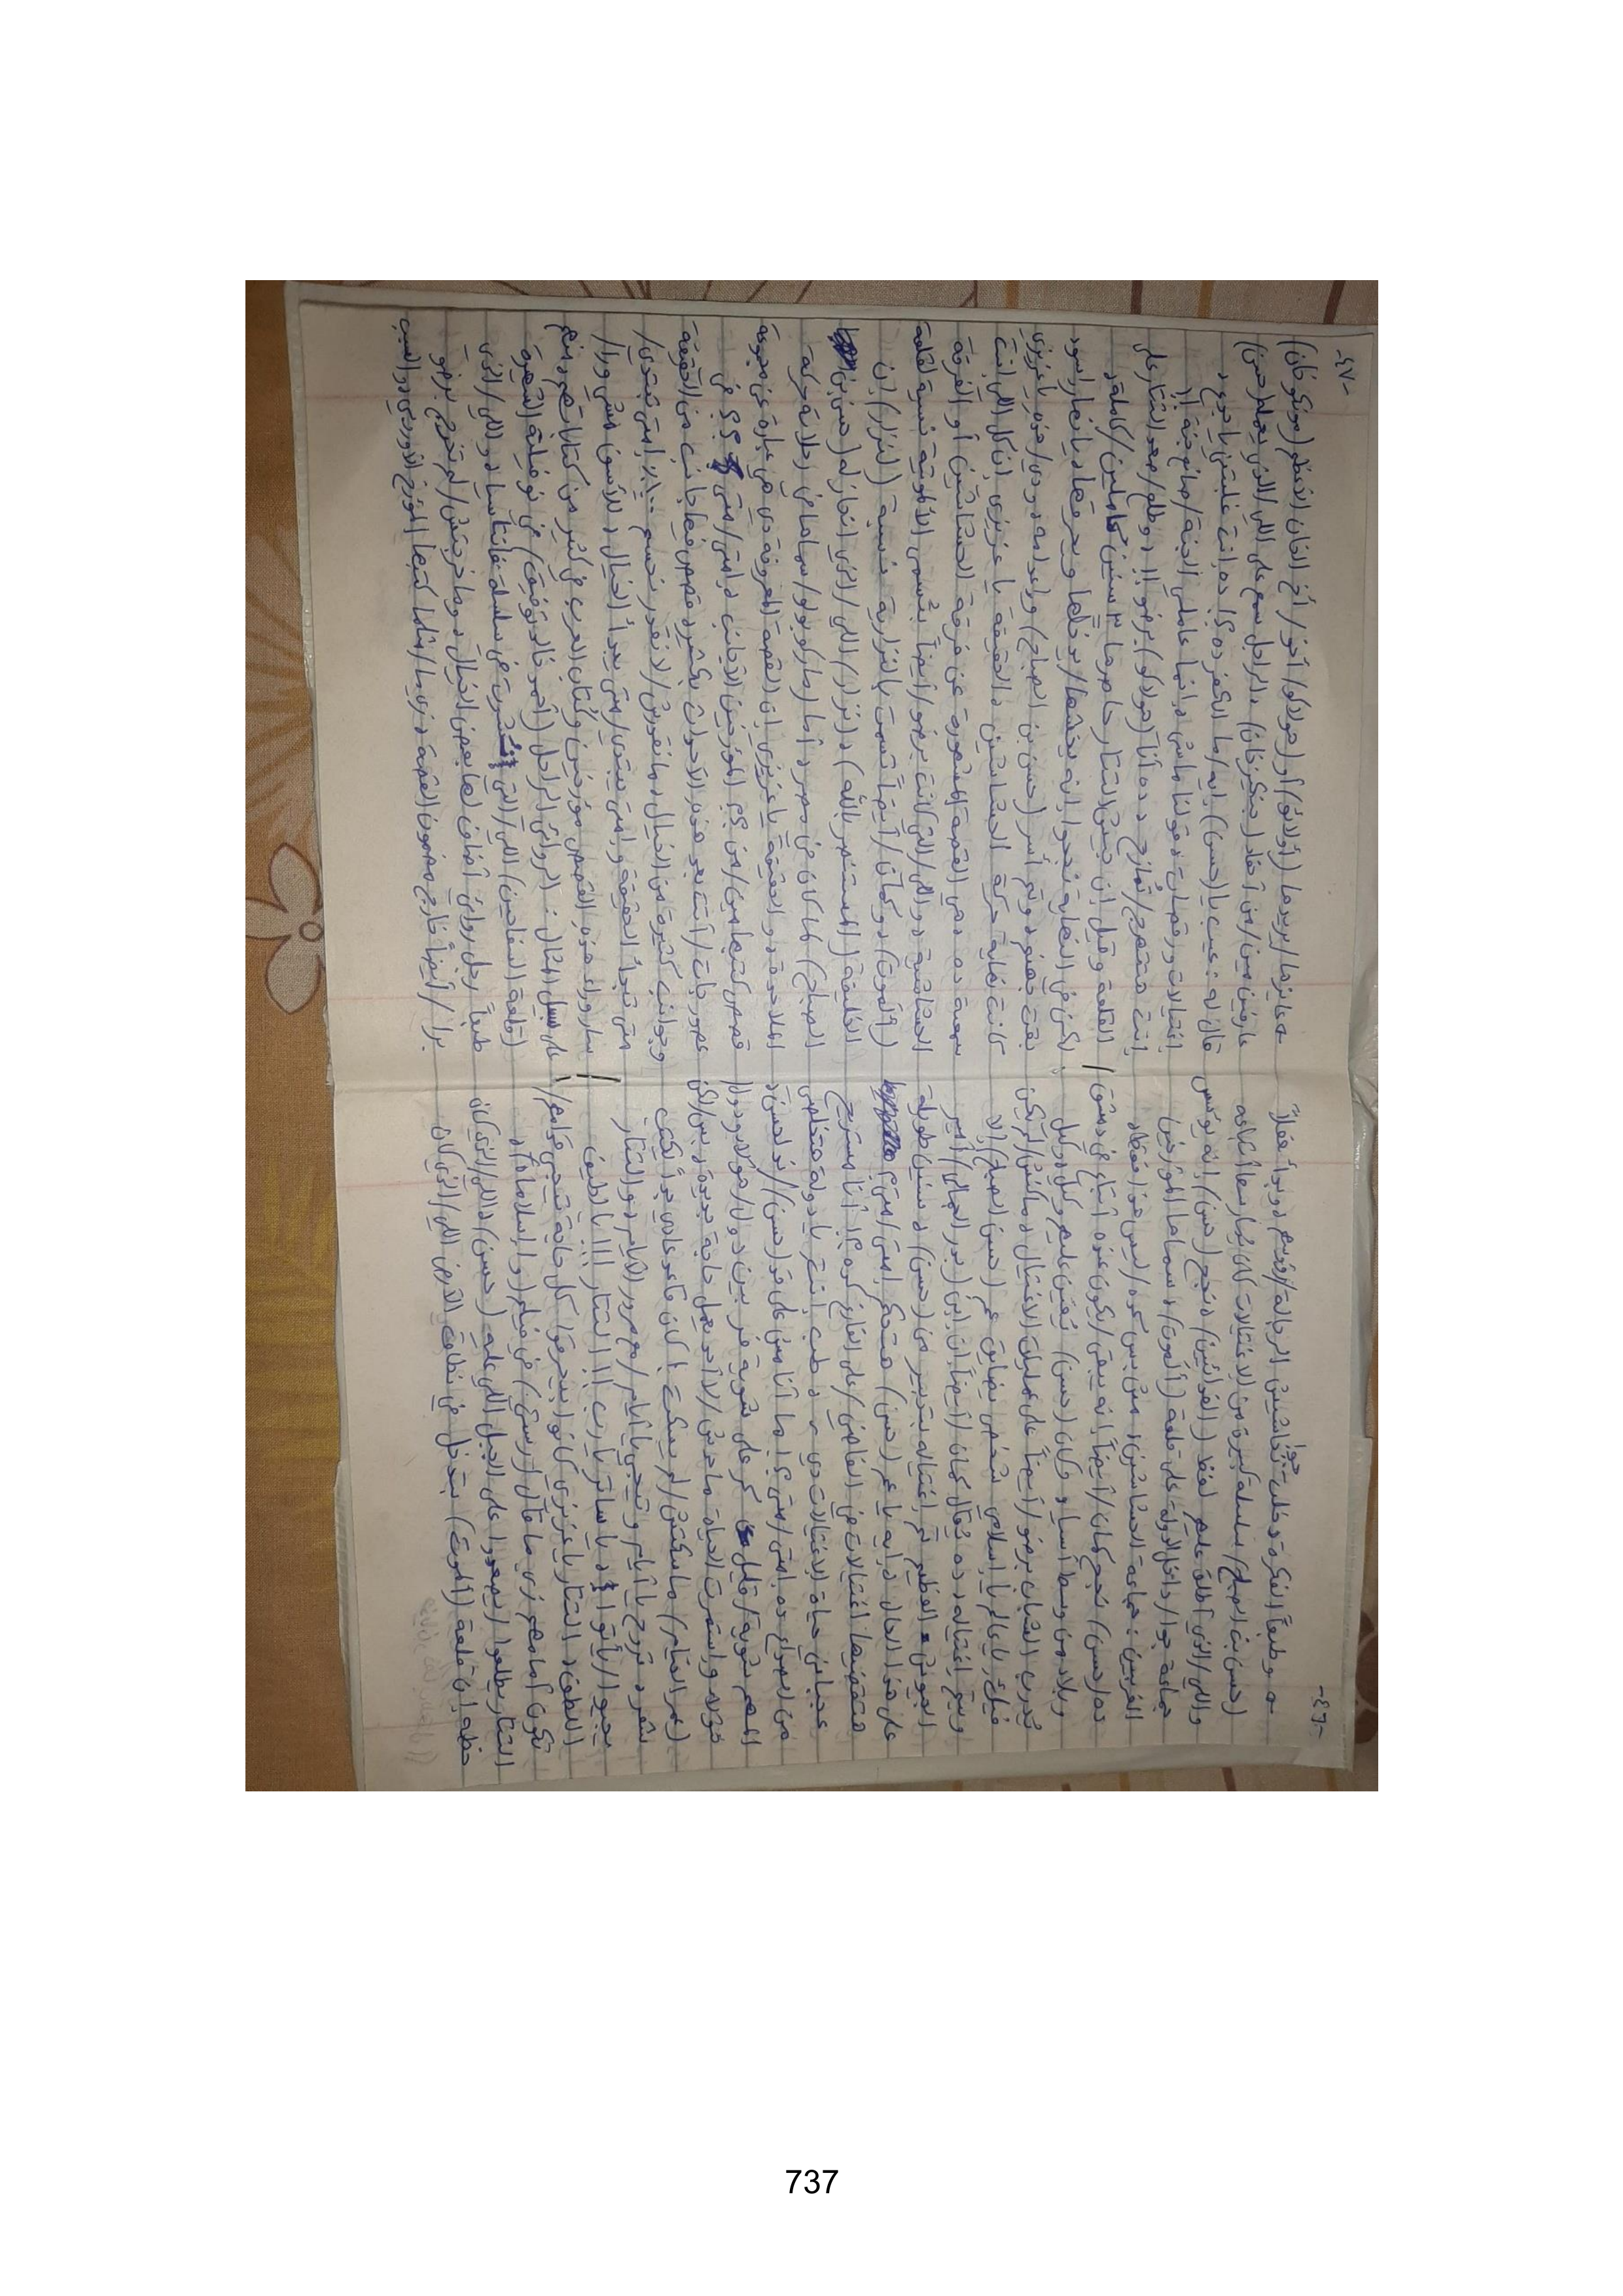 -٤٦-
→ وطبعاً الفكرة دخلت جوا حشاشين الرجالة/قدتهم دوبدأ فعلاً
(حسن بن الصباح) سلسلة كبيرة من الاغتيالات كان بيمارسها أتباعه
واللي/الذي أطلق عليهم لفظ (الفدائيين) ونجح (حسن) إنه يؤسس
جماعة جوا/داخل الدولة على قلعة (ألموت) وسماها المؤرخين
الغربيين: جماعة الحشاشين، مش بس كده/ليس هذا فقط
ده (حسن) نجح كمان/أيضاً إنه يبقى/يكون عنده أتباع في دمشق
وبلاد من وسط آسيا، وكان (حسن) يُعين عليهم وكيل وكيل
يُدرب الشباب برضو/أيضاً على عمليات الاغتيال ومكنش/لم يكن
فيك يا عالم يا إسلامي شخص يضايق عم (حسن الصباح) إلا
ويتم اغتياله، ده يُقال كمان/أيضاً إن ابن (بدر الجمالي) أمير
الجيوش العظيم تم اغتياله بتدبير من (حسن)، سنين طويلة
على هذا الحال، إيه يا عم (حسن) هتحكم إمتى/متى؟
هتقضيها اغتيالات في القاضي/على الفاضي كده؟! أنا مستريح
عجباني حياة الاغتيالات دي، طب إنتم يا دولة هتخلصي
من الصراع ده إمتى/متى؟! ما أنا مش على قد (حسن)/ند لحسن،
المهم شوية/قليل كر على شوية فر بين دول/هؤلاء ودول/
هؤلاء واستمرت الحياة، ماحدش/لا أحد يعمل حاجة جديدة، بس/لكن
(عمر الخيام) ماسكتش/لم يسكت؟ كان قاعد عادي جداً يكتب
شعر، تروح يا أيام وتيجي يا أيام/مع مرور الأيام دوالتتار
ييجوا/يأتوا، يا ساتر يا رب!! التتار!!! يا لطيف
اللطف، التتار يا عزيزي كانوا بيحرقوا كل حاجة تيجي قدامهم/
تكون أمامهم زي ما قال (رستي) في فيلم (وا إسلاماه)،
التتار يطلعوا/يصعدوا على الجبل اللي عليه (حسن)، اللي/الذي كان
حظه إن قلعة (ألموت) بتدخل في نطاق الأرض اللي/الذي كان
-٤٧-
→ عايزها/يريدها (أولاق) أو (هولاكو) أخو/أخ الخان الأعظم (مونكو خان)
عارفين مين/من أحفاد (جنكيز خان)، الراجل سمع على اللي/الذي بيعمله (حسن)
قال له: عيب يا (حسن)، إيه/ما الكفر ده؟! ده انت غلبتني يا جدو،
اغتيالات ورقصات وقولنا ماشي، إنما عامللي الجنة/صانع جنة!!
إنت هتهرج/تُمازح، ده أنا (هولاكو) برضو!! وطلع/صعد التتار على
القلعة وقيل إن جيش التتار حاصرها ٣ سنين كاملين/كاملة،
لكن في النهاية نجحوا إنه يخشها/يدخلها ويحرقها، يا نهار اسود
بقت جهنم وتم أسر (حسن بن الصباح) وإعدامه ودي/هذه يا عزيزي
كانت نهاية حركة الحشاشين، الحقيقة يا عزيزي إن كل اللي انت
سمعته ده دهي القصة المشهورة عن فرقة الحشاشين أو الفرقة
الحشاشية، واللي/التي كانت برضو/أيضاً بتُسمى الألموتية نسبة لقلعة
(ألموت) وكمان/أيضاً تُسمت بالنزارية نسبة (لنزار) ابن
الخليفة (المستنصر بالله)، (نزار) اللي/الذي انحاز له (حسن بن
الصباح) لما كان في مصر، أما (ماركو بولو) سماها في رحلاته حركة
الملاحدة، والحقيقة يا عزيزي إن القصة المعروفة دي هي عبارة عن مجموعة
قصص كتبها مين/من؟! المؤرخين الأجانب، إمتى/متى؟! في
عصور جات/أتت بعد هذه الأحداث بكتير، قصص فيها جانب من الحقيقة
وجوانب كثيرة من الخيال، مانقدرش/لا نقدر نحسم... إمتى تبتدي/
متى تبدأ الحقيقة وإمتى يبتدي/متى يبدأ الخيال، للأسف مشي ورا/
سار وراء هذه القصص مؤرخين وكُتاب العرب في كثير من كتاباتهم ومنهم
على سبيل المثال: الروائي الراحل (أحمد خالد توفيق) في نوفيلته الشهيرة
(قلعة السفاحين) اللي/التي نُشرت في سلسلة فانتازيا، واللي/الذي
طبعاً رجل روائي أضاف لها بعض الخيال، وما خرجتش/لم تخرج برضو
برا/أيضاً خارج مضمون القصة، زي ما/مثلما كتبها المؤرخ الأوروبي والسبب